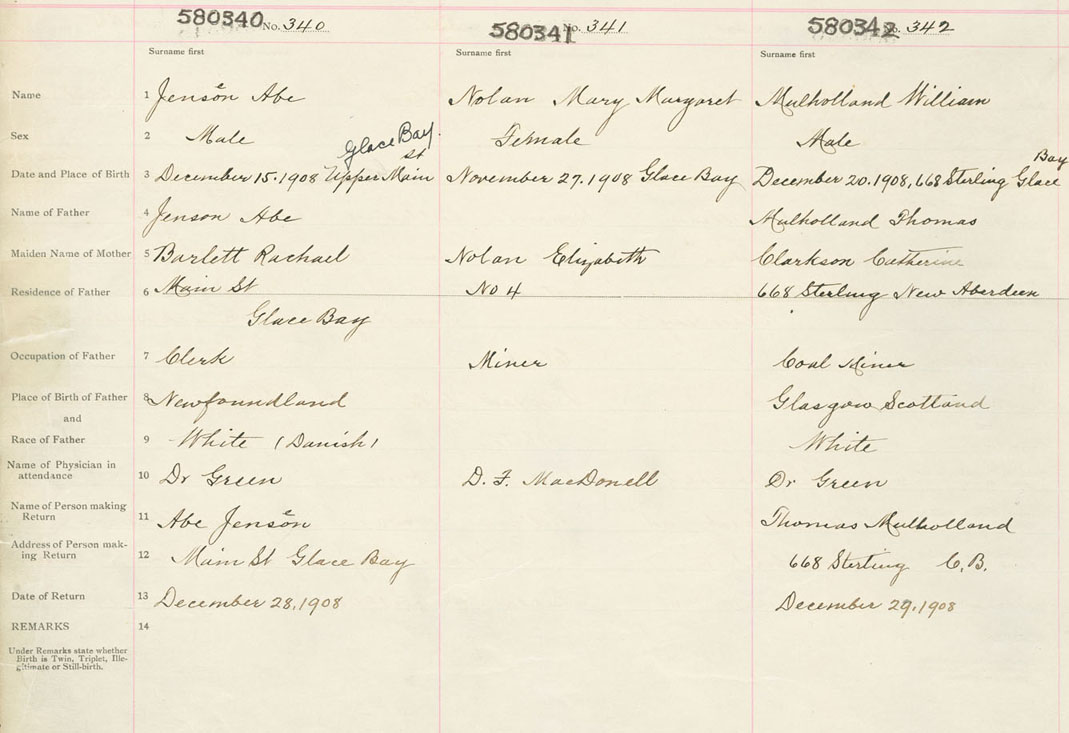 580340 No. 340 580341 No. 341 580342 No. 342
Surname first Surname first Surname first
Name 1 Jenson Abe Nolan Mary Margaret Mulholland William
Sex 2 Male Female Male
Glace Bay
St Bay
Date and Place of Birth 3 December 15. 1908 Upper Main November 27. 1908 Glace Bay December 20. 1908, 668 Sterling Glace
Name of Father 4 Jenson Abe Mulholland Thomas
Maiden Name of Mother 5 Barlett Rachael Nolan Elizabeth Clarkson Catherine
Residence of Father 6 Main St No 4 668 Sterling New Aberdeen
Glace Bay
Occupation of Father 7 Clerk Miner Coal Miner
Place of Birth of Father 8 Newfoundland Glasgow Scotland
and
Race of Father 9 White (Danish) White
Name of Physician in
attendance 10 Dr Green D. F. MacDonell Dr Green
Name of Person making
Return 11 Abe Jenson Thomas Mulholland
Address of Person mak-
ing Return 12 Main St Glace Bay 668 Sterling C.B.
Date of Return 13 December 28, 1908 December 29. 1908
REMARKS 14
Under Remarks state whether
Birth is Twin, Triplet, Ille-
gitimate or Still-birth.